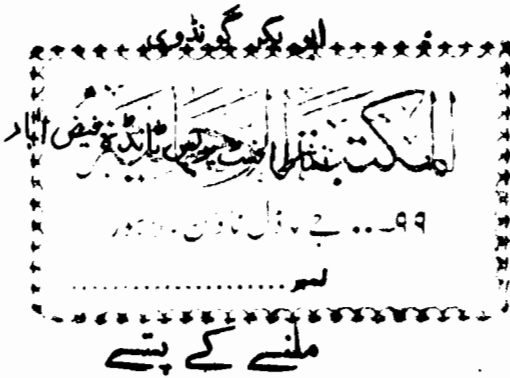 ابو بکر گونڈوی
المکتبة ٹانڈہ فیض آباد
۹۹... جے ماڈل ٹاؤن۔ لاہور
نمبر ......................
ملنے کے پتے